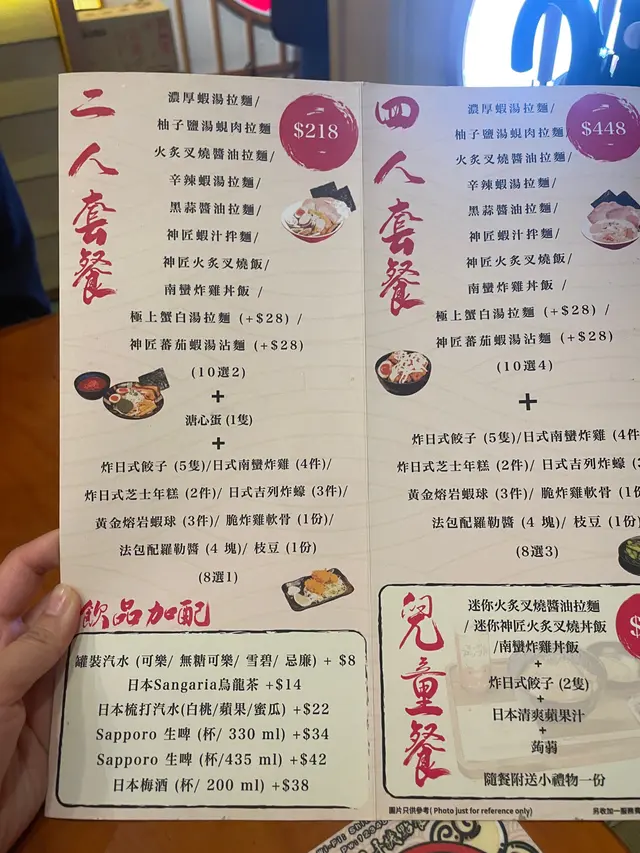 二人套餐
$218
濃厚蝦湯拉麵/
柚子鹽湯蜆肉拉麵
火炙叉燒醬油拉麵/
辛辣蝦湯拉麵/
黑蒜醬油拉麵/
神匠蝦汁拌麵/
神匠火炙叉燒飯/
南蠻炸雞丼飯 /
極上蟹白湯拉麵 (+$28) /
神匠蕃茄蝦湯沾麵 (+$28)
(10選2)
+
溏心蛋 (1隻)
+
炸日式餃子 (5隻)/日式南蠻炸雞 (4件)/
炸日式芝士年糕 (2件)/ 日式吉列炸蠔 (3件)/
黃金熔岩蝦球 (3件)/ 脆炸雞軟骨 (1份)/
法包配羅勒醬 (4 塊)/ 枝豆 (1份)
(8選1)
飲品加配
罐裝汽水 (可樂/ 無糖可樂/ 雪碧/ 忌廉) + $8
日本Sangaria烏龍茶 +$14
日本梳打汽水(白桃/蘋果/蜜瓜) +$22
Sapporo 生啤 (杯/ 330 ml) +$34
Sapporo 生啤 (杯/435 ml) +$42
日本梅酒 (杯/ 200 ml) +$38
四人套餐
$448
濃厚蝦湯拉麵/
柚子鹽湯蜆肉拉麵/
火炙叉燒醬油拉麵/
辛辣蝦湯拉麵/
黑蒜醬油拉麵/
神匠蝦汁拌麵/
神匠火炙叉燒飯 /
南蠻炸雞丼飯 /
極上蟹白湯拉麵 (+$28) /
神匠蕃茄蝦湯沾麵 (+$28)
(10選4)
+
炸日式餃子 (5隻)/日式南蠻炸雞 (4件
炸日式芝士年糕 (2件)/ 日式吉列炸蠔 (
黃金熔岩蝦球 (3件)/ 脆炸雞軟骨 (1份
法包配羅勒醬 (4 塊)/ 枝豆 (1份
(8選3)
兒童餐
$
迷你火炙叉燒醬油拉麵
/ 迷你神匠火炙叉燒丼飯
/南蠻炸雞丼飯
+
炸日式餃子 (2隻)
+
日本清爽蘋果汁
+
蒟蒻
隨餐附送小禮物一份
圖片只供參考( Photo just for reference only)
另收加一服務